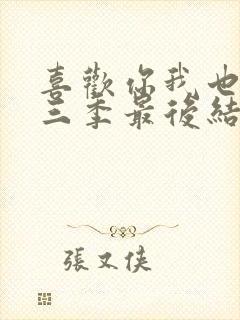 喜歡你我也
三季最後結
張又俠